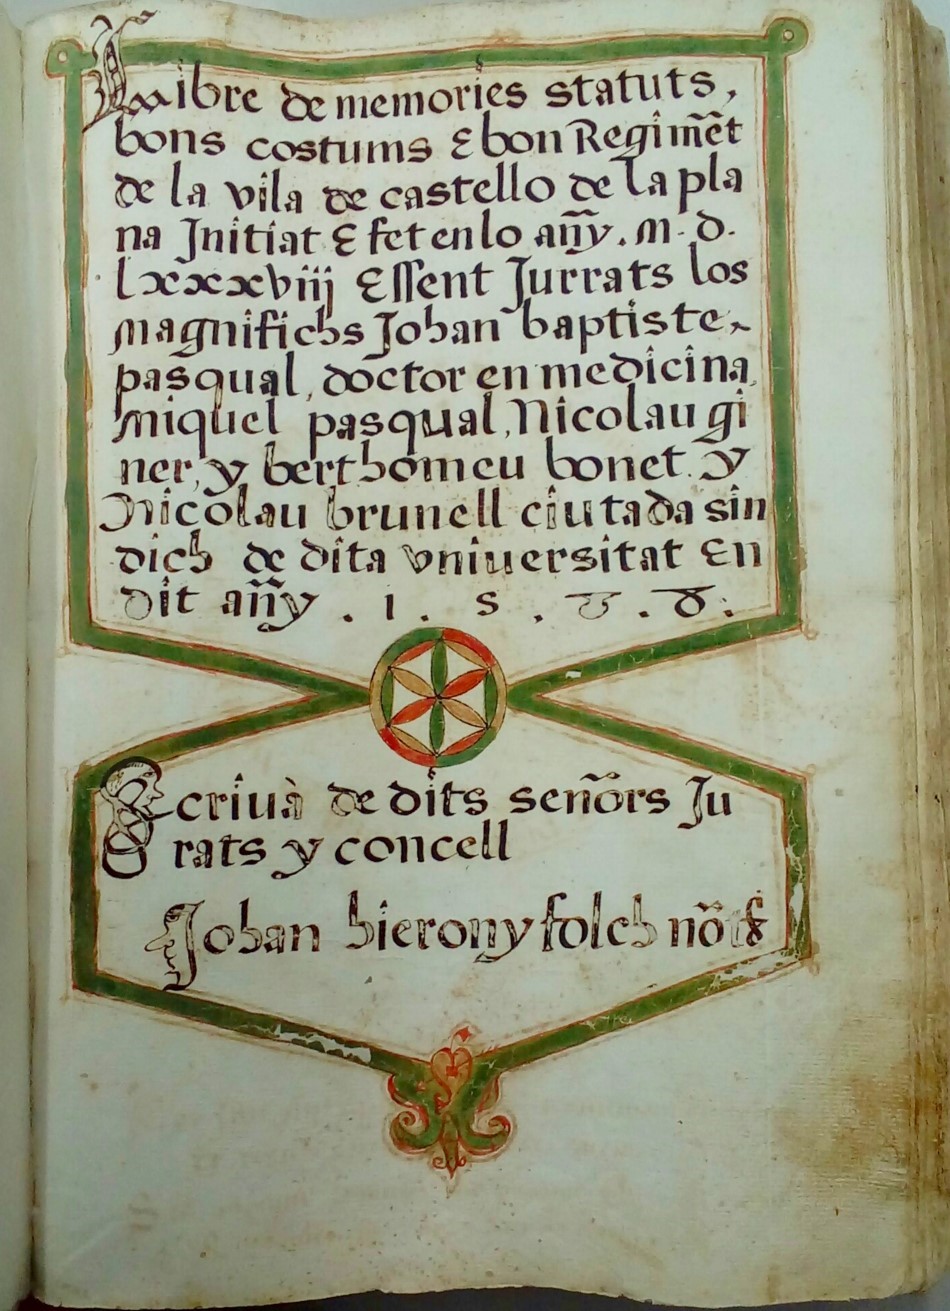 Llibre de memories statuts,
bons costums E bon Regim̃ẽt
de la vila de castello de la pla
na Jnitiat E fet en lo añy. M. D.
lxxxxviij Essent Jurrats los
magnifichs Johan baptiste
pasqual, doctor en medicina,
miquel pasqual, Nicolau gi
ner, y berthomeu bonet. y
Nicolau brunell ciutada sin
dich de dita vniuersitat En
dit añy . 1 . 5 .
Scriuà de dits señors Ju
rats y concell
Johan hierony folch